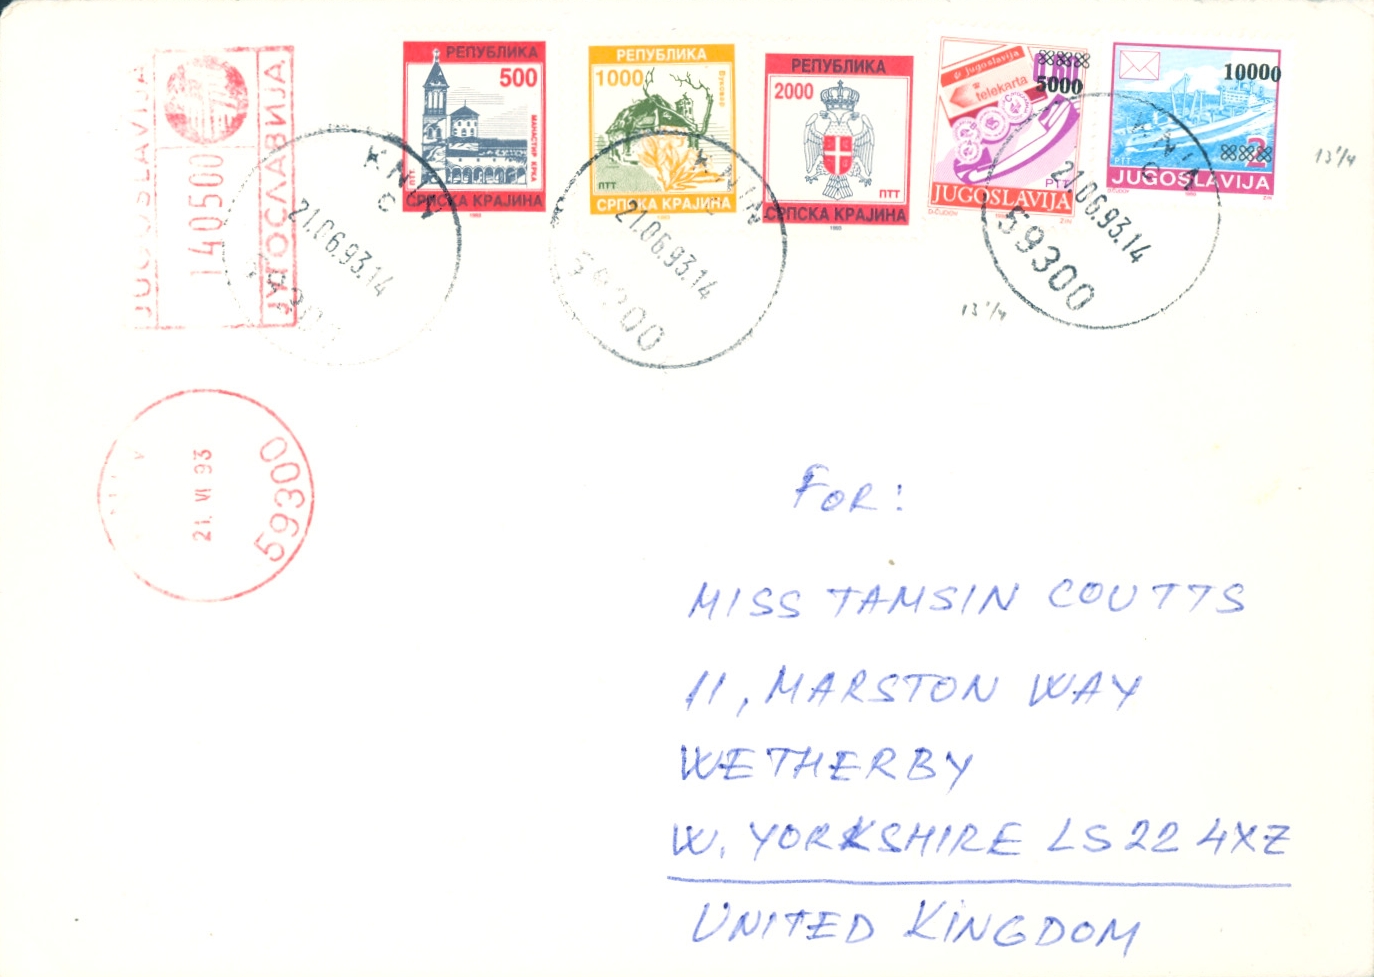 JUGOSLAVIJA
140500
ЈУГОСЛАВИЈА
РЕПУБЛИКА
500
МАНАСТИР КРКА
ПТТ
СРПСКА КРАЈИНА
1993
РЕПУБЛИКА
1000
Вуковар
ПТТ
СРПСКА КРАЈИНА
1993
РЕПУБЛИКА
2000
ПТТ
СРПСКА КРАЈИНА
1993
jugoslavija
telekarta
5000
PTT
JUGOSLAVIJA
D.ČUDOV
ZIN
10000
2
PTT
JUGOSLAVIJA
D.ČUDOV
ZIN
13¼
13¼
KNIN
C
21.06.93.14
59300
KNIN
C
21.06.93.14
59300
KNIN
C
21.06.93.14
59300
21. VI 93
59300
FOR:
MISS TAMSIN COUTTS
11, MARSTON WAY
WETHERBY
W. YORKSHIRE LS22 4XZ
UNITED KINGDOM